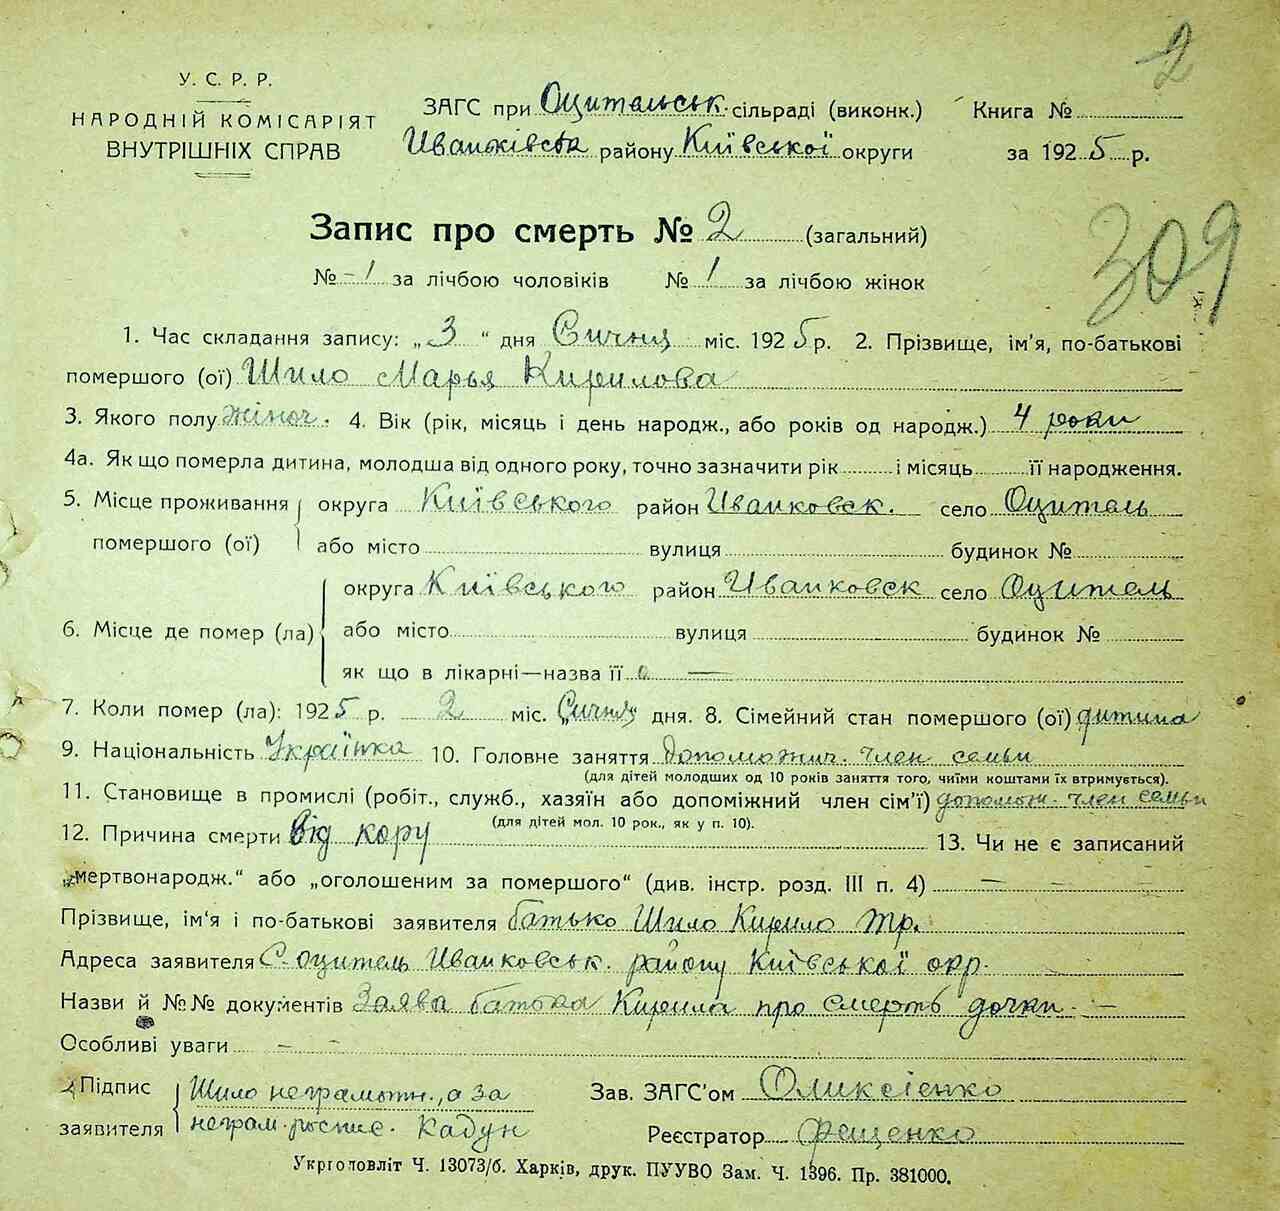 2
У. С. Р. Р.
НАРОДНІЙ КОМІСАРІЯТ
ВНУТРІШНІХ СПРАВ
ЗАГС при Оцительськ. сільраді (виконк.)
Иванківськ району Київської округи
Книга №
за 1925 р.
309
Запис про смерть № 2 (загальний)
№ - / за лічбою чоловіків № 1 за лічбою жінок
1. Час складання запису: „3 “ дня Січня міс. 1925 р. 2. Прізвище, ім'я, по-батькові
помершого (ої) Шило Марья Кирилова
3. Якого полу жіноч. 4. Вік (рік, місяць і день народж., або років од народж.) 4 роки
4а. Як що померла дитина, молодша від одного року, точно зазначити рік і місяць її народження.
5. Місце проживання округа Київського район Иванковск. село Оцитель
помершого (ої) або місто вулиця будинок №
округа Київського район Иванковск село Оцитель
6. Місце де помер (ла) або місто вулиця будинок №
як що в лікарні—назва її —
7. Коли помер (ла): 1925 р. 2 міс. Січня дня. 8. Сімейний стан помершого (ої) дитина
9. Національність Українка 10. Головне заняття допоможич. член семьи
(для дітей молодших од 10 років заняття того, чиїми коштами їх втримується).
11. Становище в промислі (робіт., служб., хазяїн або допоміжний член сім'ї) допомож. член семьи
(для дітей мол. 10 рок., як у п. 10).
12. Причина смерти від кору 13. Чи не є записаний
„мертвонародж.“ або „оголошеним за помершого“ (див. інстр. розд. III п. 4) — — — —
Прізвище, ім'я і по-батькові заявителя батько Шило Кирило Тр.
Адреса заявителя С. оцитель Иванковськ. району Київської окр.
Назви й №№ документів Заява батька Кирила про смерть дочки —
Особливі уваги — —
Підпис заявителя Шило неграмотн., а за
неграм. роспис. Кадун
Зав. ЗАГС'ом Оликсієнко
Реєстратор Фещенко
Укрголовліт Ч. 13073/б. Харків, друк. ПУУВО Зам. Ч. 1396. Пр. 381000.